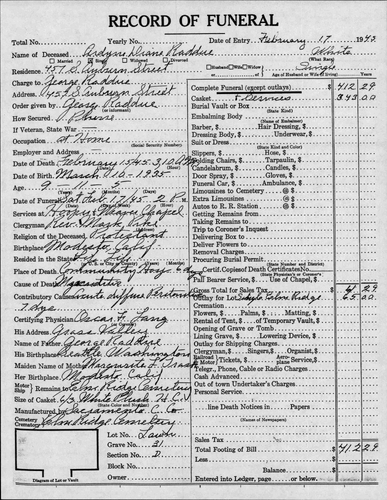 RECORD OF FUNERAL
Total No. Yearly No. Date of Entry February 17 1945
Name of Deceased Diane Raddue White
Married Single Widowed Divorced (What Race)
Residence 457 S. Auburn Street Single
Husband Wife Widow Age of Husband or Wife (if living)
Charge to George Raddue
Address 457 S Auburn Street
Order given by George Raddue
How Secured Phone
If Veteran, State War
Occupation at Home
(Social Security Number)
Employer and Address
Date of Death February 15 45 3:10 A.M.
Date of Birth March 10 - 1935
Age 9 11 5
Date of Funeral Sat. Feb. 17/45 2 P.M.
Services at Hooper Weaver Chapel
Clergyman Rev.
Religion of the Deceased Protestant
Birthplace Modesto, Calif
Resided in the State
Place of Death Community Hosp
Cause of Death
Contributory Causes Acute diffuse Peritonitis
Certifying Physician Oscar F. Jang
His Address Grass Valley
Name of Father George Raddue
His Birthplace Seattle Washington
Maiden Name of Mother Marguerite
Her Birthplace Modesto Calif
Elm Ridge Cemetery
Size of Casket 4/3 White Plush
(State Color and Number)
Manufactured by Sacramento C. Co.
Cemetery Elm Ridge Cemetery
Crematory
Lot No. Lawn
Grave No. 31
Section No. D
Block No.
Owner
Diagram of Lot or Vault
Complete Funeral (except outlays) $ 412 29
Casket & Services 343 00
Burial Vault or Box
(State Kind)
Embalming Body
(Name of Embalmer)
Barber, Hair Dressing,
Dressing Body, Underwear,
Suit or Dress
(State Kind and Color)
Slippers, Hose,
Folding Chairs, Tarpaulin,
Candelabrum, Candles,
Door Spray, Gloves,
Funeral Car, Ambulance,
Limousines to Cemetery @
Extra Limousines @
Autos to R. R. Station @
Getting Remains from
Taking Remains to
Trip to Coroner's Inquest
Delivering Box to
Deliver Flowers to
Removal Charges
Procuring Burial Permit
(State Number and District)
Certif. Copies of Death Certificates No.
(State Physician's or Coroner's)
Pall Bearer Service, Use of Chapel,
Gross Total for Sales Tax
Outlay for Lot Single Elm Ridge 65 00
Flowers, Palms, Matting,
Rental of Tent, of Temporary Vault,
Opening of Grave or Tomb
Lining Grave, Lowering Device,
Outlay for Shipping Charges
Clergyman, Singers, Organist,
Railroad Tickets, Aero- Service
Telegr., Phone, Cable or Radio Charges
Cash Advanced
Out of town Undertaker's Charges
Personal Service
line Death Notices in Papers
Sales Tax
Total Footing of Bill $ 412 29
Less
Balance
Entered into Ledger, page or below.